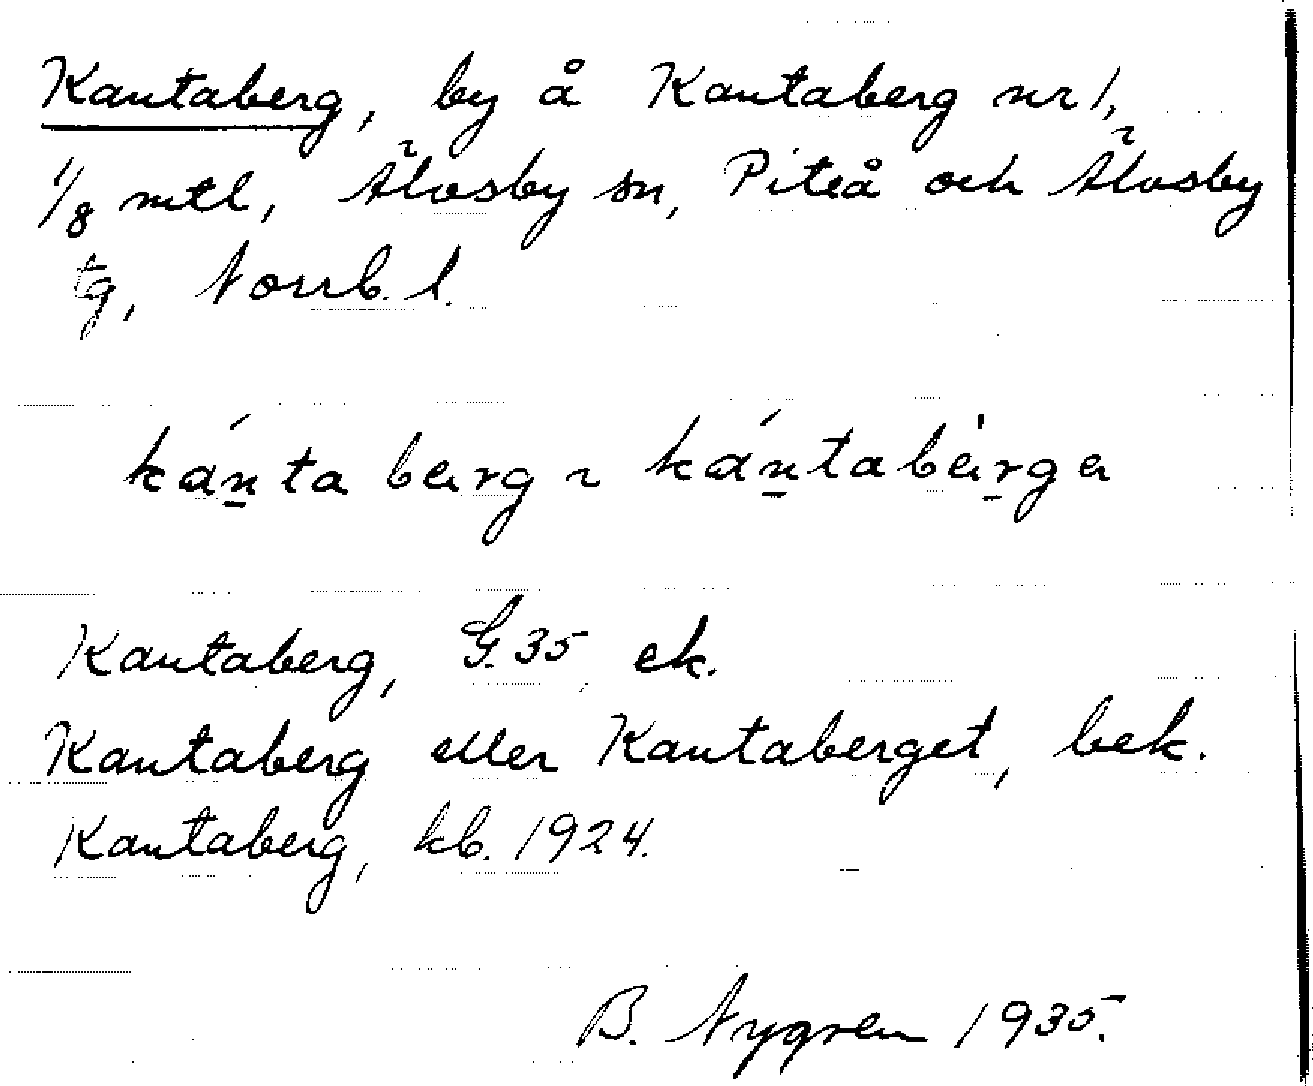 Kantaberg, by å Kantaberg nr 1,
1/8 mtl, Älvsby sn, Piteå och Älvsby
tg, Norrb. l.
kánta bärg ~ kántabärga
Kantaberg, G. 35, ek.
Kantaberg eller Kantaberget, bek.
Kantaberg, kb. 1924.
B. Nygren 1935.